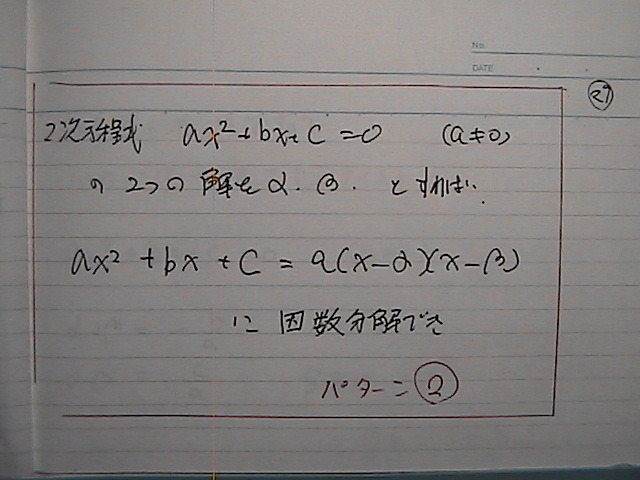 No.
DATE
27
2次方程式 ax²+bx+c=0 (a≠0)
の2つの解をα.β.とすれば、
ax²+bx+c=a(x-α)(x-β)
に因数分解でき
パターン②